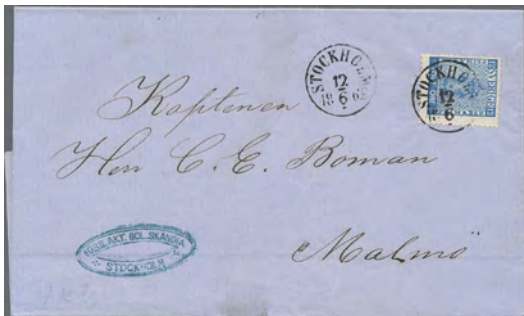 STOCKHOLM
12
6
STOCKHOLM
12
6
Kaptenen
Herr C. E. Boman
Malmö
FÖRS. AKT. BOL. SKANDIA
STOCKHOLM